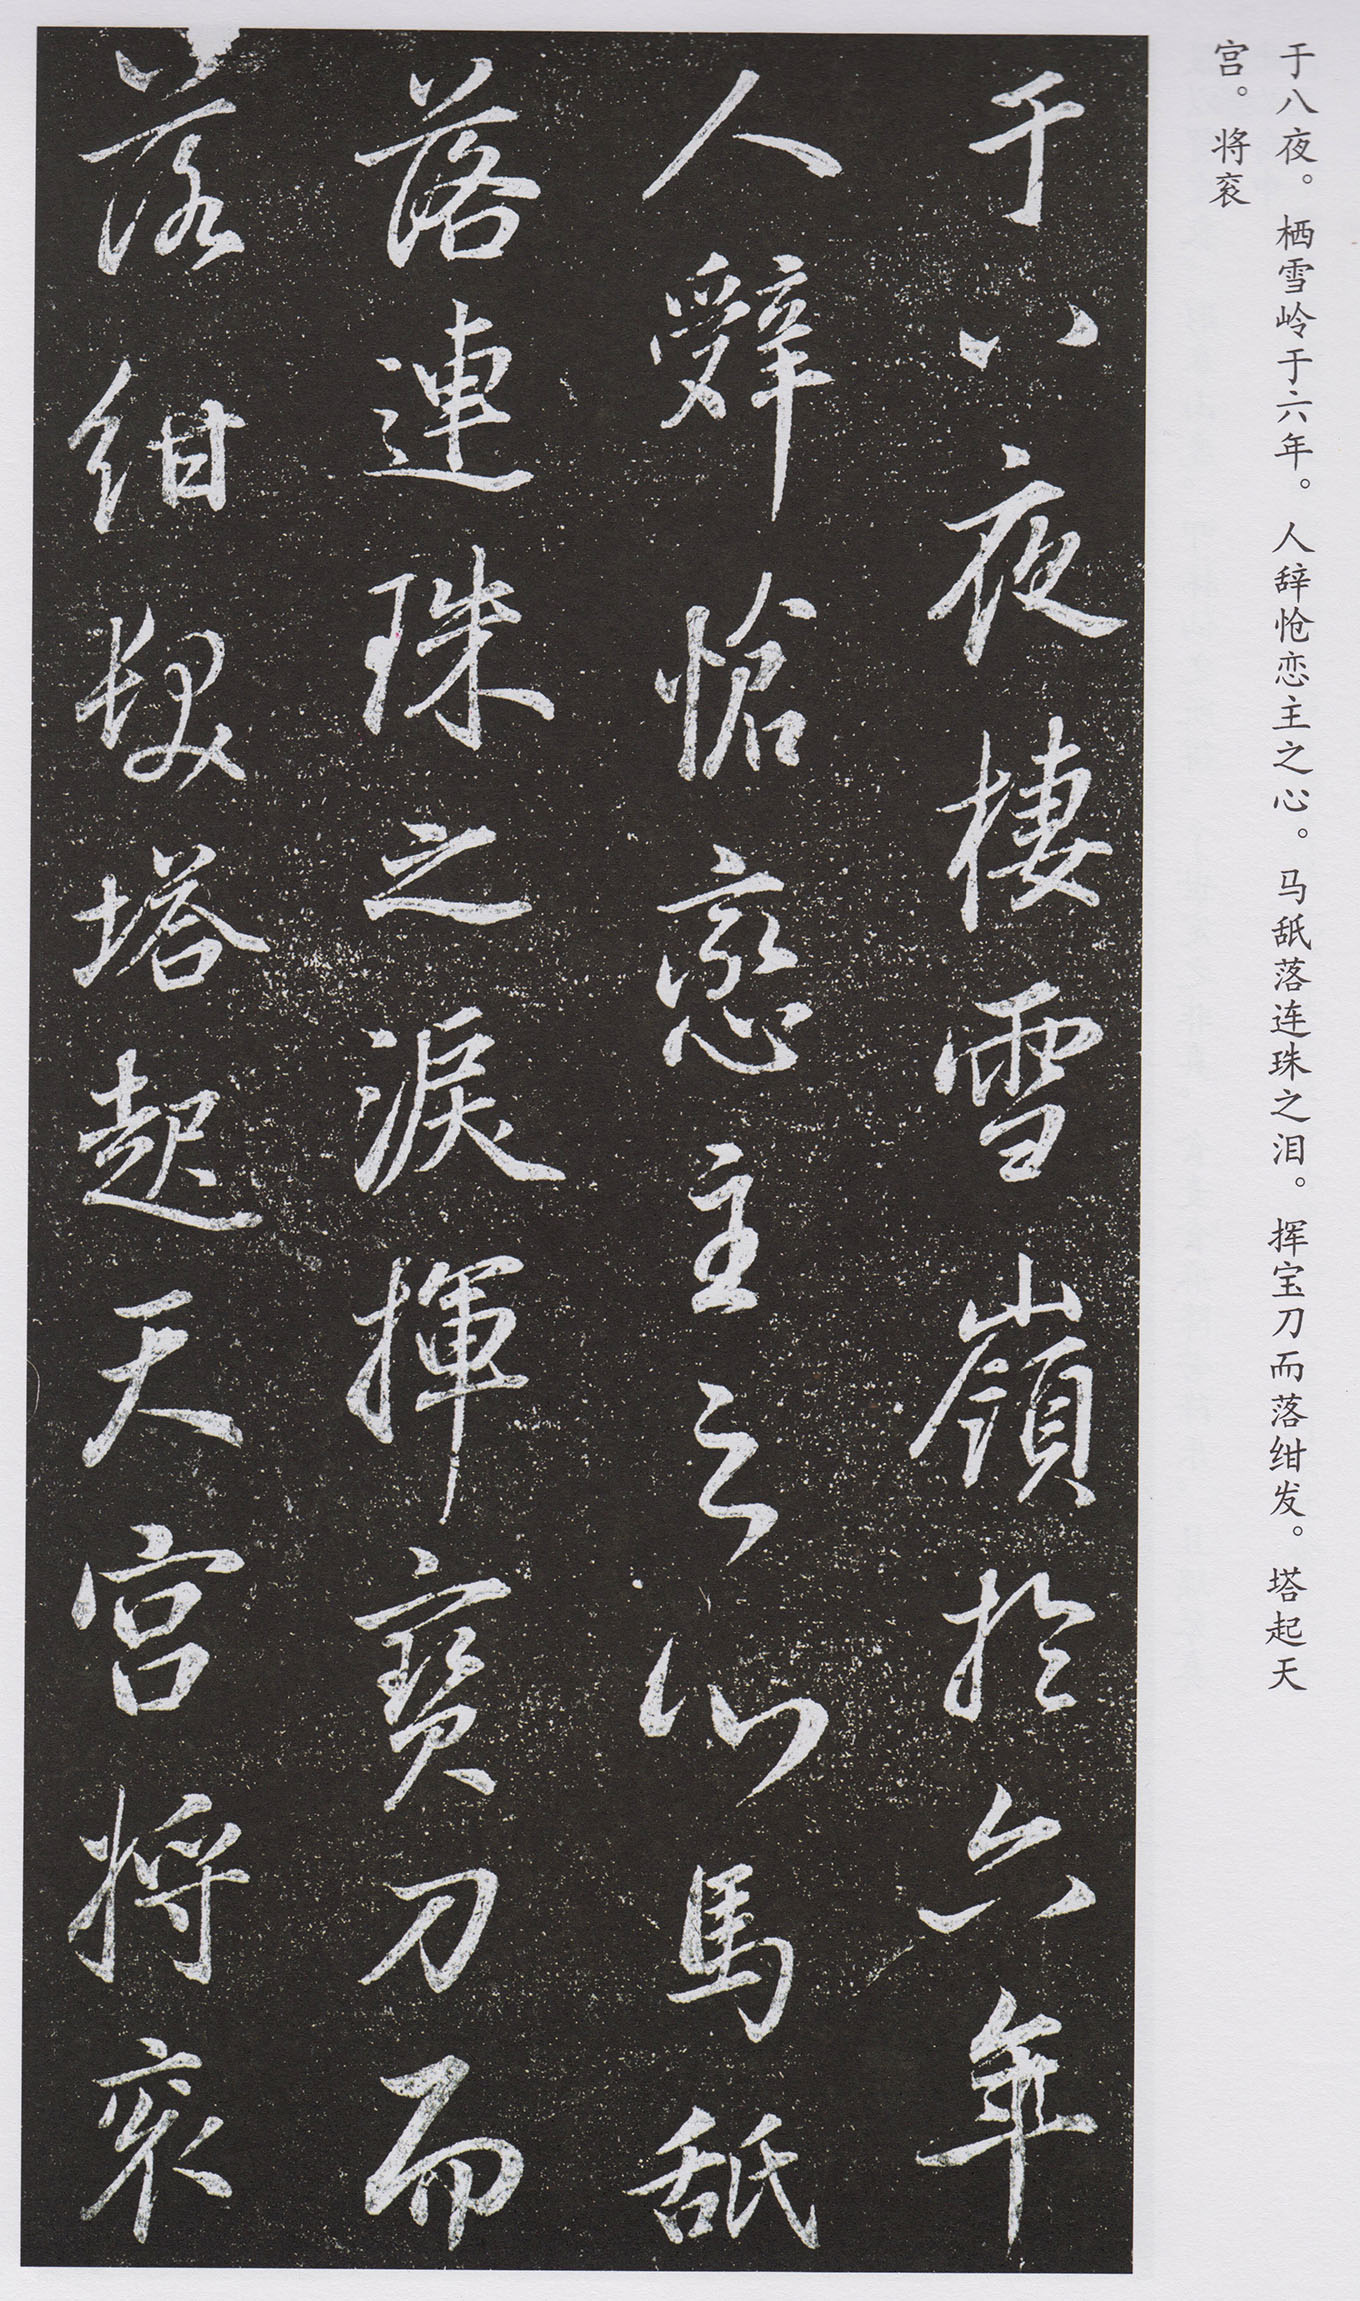 于八夜。栖雪岭于六年。人辞怆恋主之心。马舐落连珠之泪。挥宝刀而落绀发。塔起天
宫。将衮
于八夜棲雪嶺於六年
人辤愴戀主之心馬舐
落連珠之淚揮寶刀而
落紺髮塔起天宮將衮